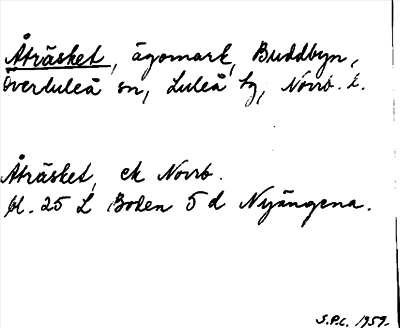 Åträsket, ägomark, Buddbyn,
Överluleå sn, Luleå tg, Norrb. l.
Åträsket, ek Norrb.
bl. 25 L Boden 5 d Nyängena.
S.P.L. 1959.